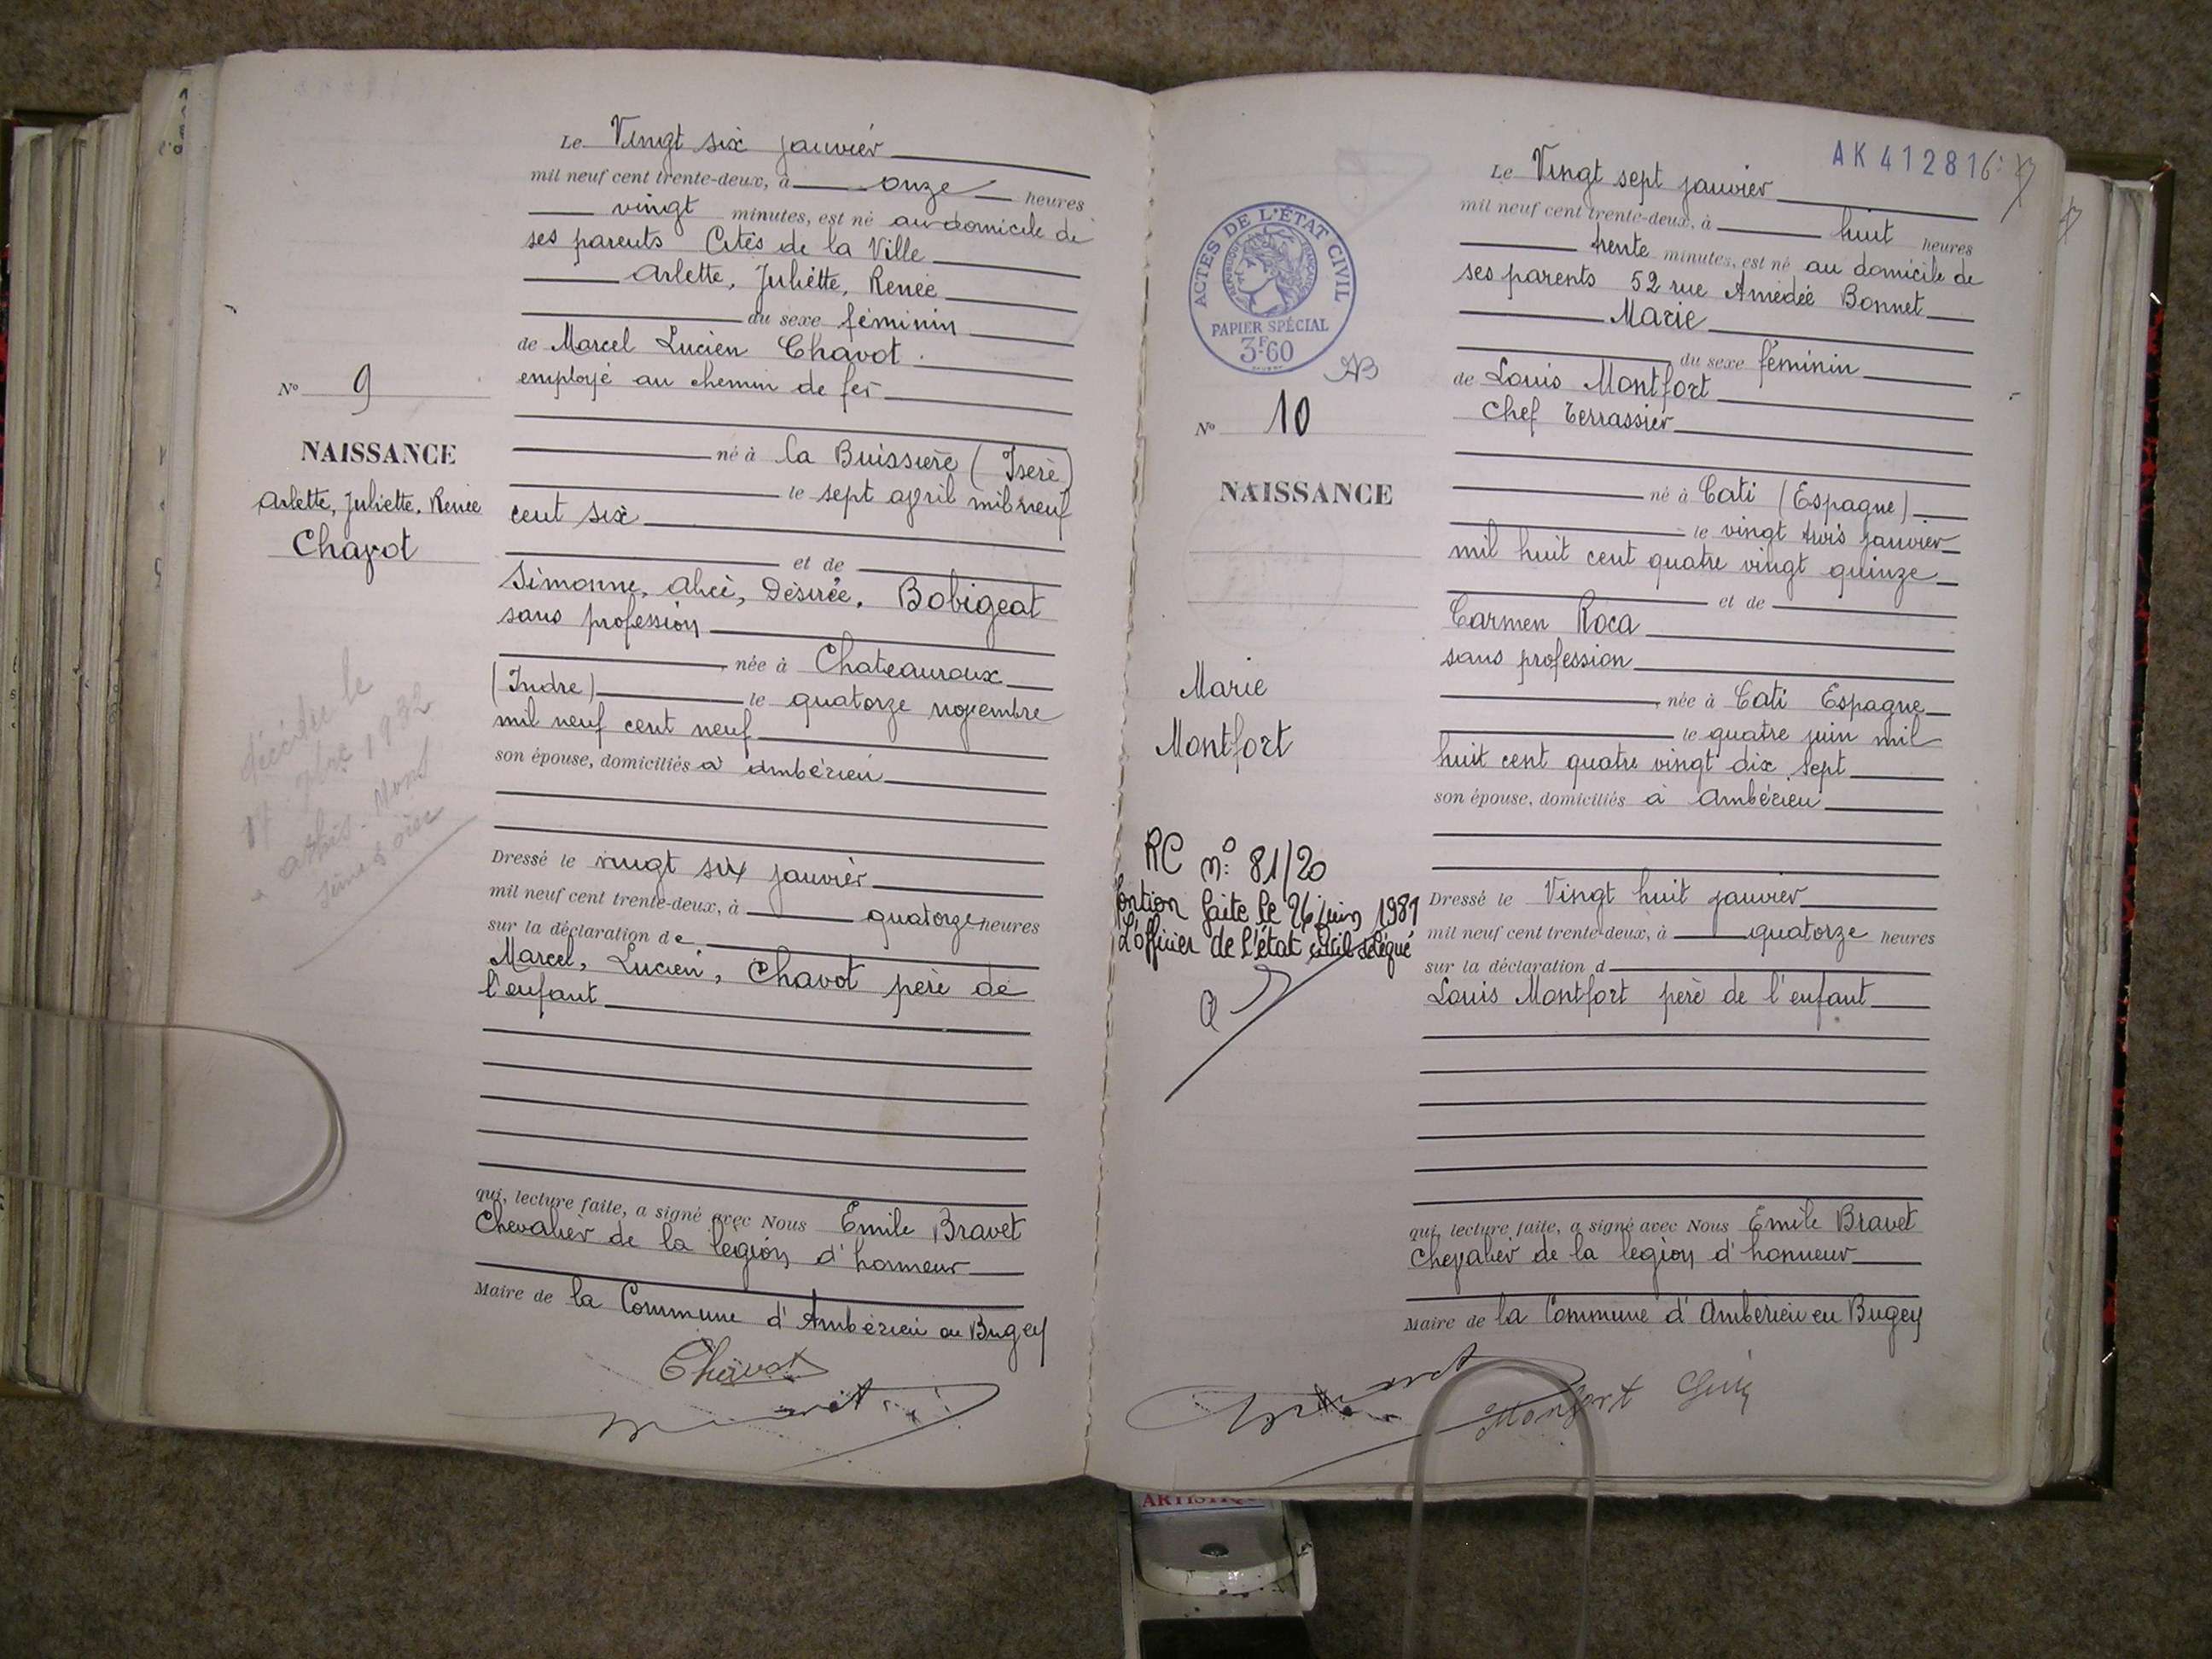 Le Vingt six janvier
mil neuf cent trente-deux, à onze heures
vingt minutes, est né au domicile de
ses parents Cités de la Ville
Arlette, Juliette, Renée
du sexe féminin
de Marcel Lucien Chavot
employé au chemin de fer
N° 9
NAISSANCE
Arlette, Juliette, Renée
Chavot
né à la Buissière (Isère)
le sept avril mil neuf
cent six
et de
Simonne, Alice, Désirée, Bobigeat
sans profession
née à Chateauroux
(Indre) le quatorze novembre
mil neuf cent neuf
son épouse, domiciliés à Ambérieu
décédée le
1932
à Athis-Mons
Seine & Oise
Dressé le vingt six janvier
mil neuf cent trente-deux, à quatorze heures
sur la déclaration de
Marcel, Lucien, Chavot père de
l'enfant
qui, lecture faite, a signé avec Nous Emile Bravet
Chevalier de la légion d'honneur
Maire de la Commune d'Ambérieu en Bugey
Chavot
AK 412816
ACTES DE L'ÉTAT CIVIL
RÉPUBLIQUE FRANÇAISE
PAPIER SPÉCIAL
3F.60
Le Vingt sept janvier
mil neuf cent trente-deux, à huit heures
trente minutes, est né au domicile de
ses parents 52 rue Amédée Bonnet
Marie
du sexe féminin
de Louis Montfort
Chef terrassier
N° 10
NAISSANCE
Marie
Montfort
né à Cati (Espagne)
le vingt trois janvier
mil huit cent quatre vingt quinze
et de
Carmen Roca
sans profession
née à Cati Espagne
le quatre juin mil
huit cent quatre vingt dix sept
son épouse, domiciliés à Ambérieu
RC n° 81/20
faite le 26 juin 1981
L'officier de l'état civil délégué
Dressé le Vingt huit janvier
mil neuf cent trente-deux, à quatorze heures
sur la déclaration d
Louis Montfort père de l'enfant
qui, lecture faite, a signé avec Nous Emile Bravet
Chevalier de la légion d'honneur
Maire de la Commune d'Ambérieu en Bugey
Monfort